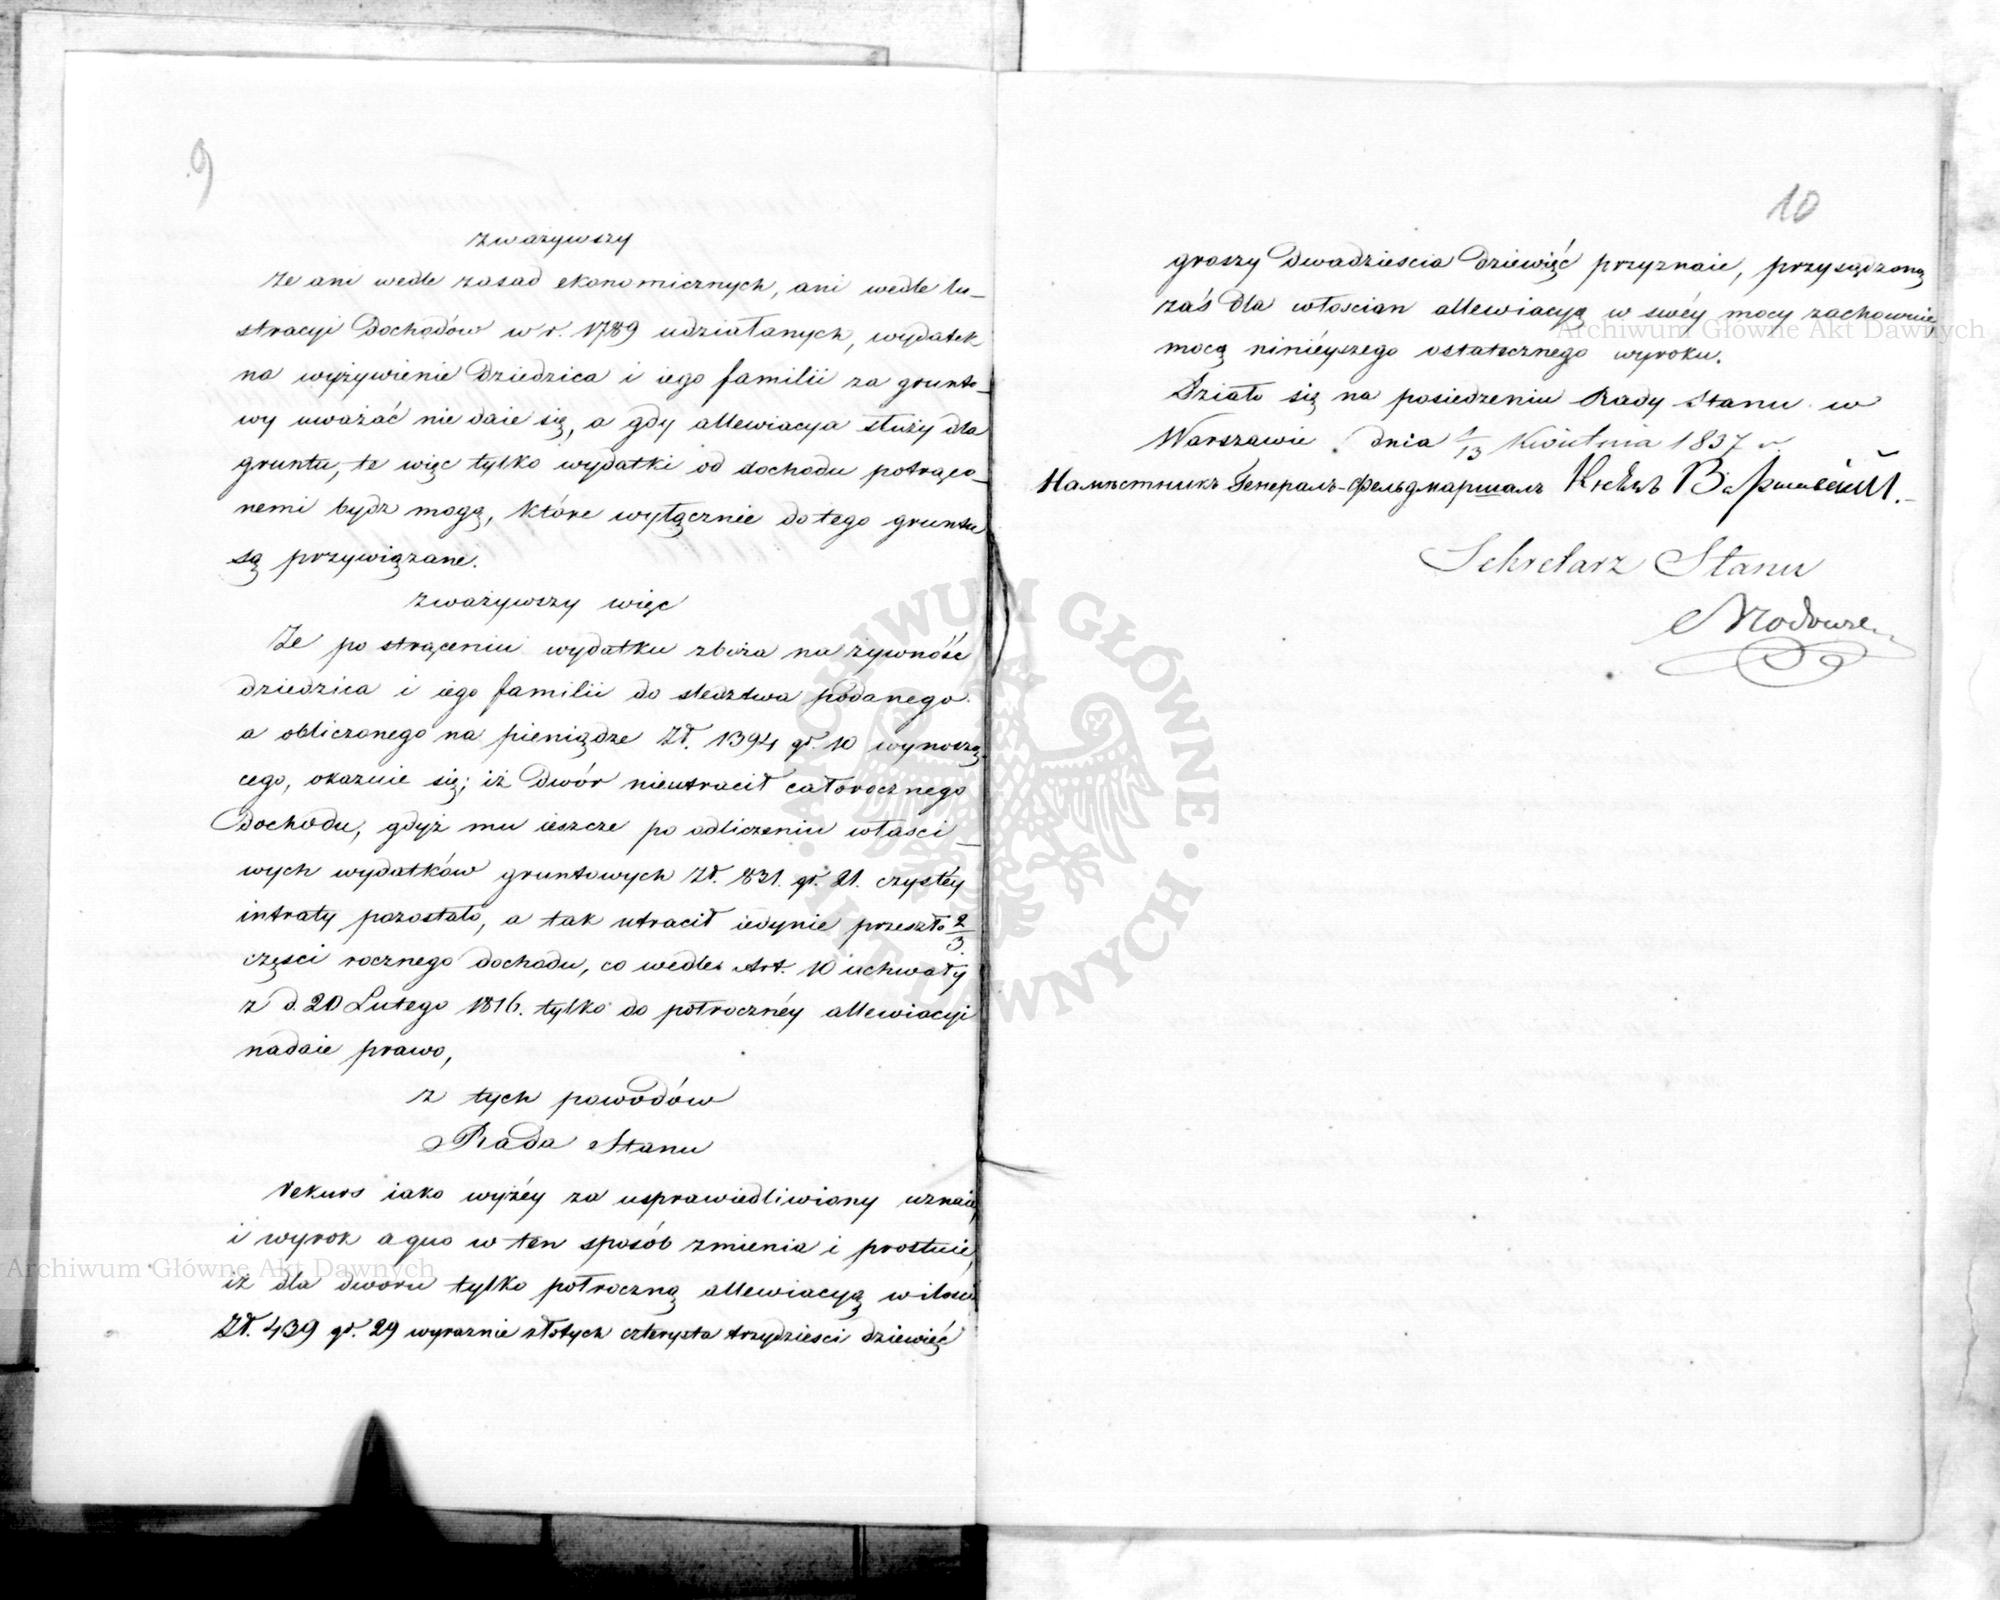 9
zważywszy
że ani wedle zasad ekonomicznych, ani wedle lu-
stracyi Dochodów w r. 1789 udziałanych, wydatek
na wyżywienie Dziedzica i iego familii za grunto-
wy uważać nie daie się, a gdy allewiacya służy dla
gruntu, te więc tylko wydatki od dochodu potrąco-
nemi bydz mogą, które wyłącznie do tego gruntu
są przywiązane.
zważywszy więc
Że po strąceniu wydatku zboża na żywność
dziedzica i iego familii do sledztwa podanego
a obliczonego na pieniądze Zł. 1394 gr. 10 wynoszą-
cego, okazuie się; iż Dwór nieutracił całorocznego
Dochodu, gdyż mu ieszcze po odliczeniu właści-
wych wydatków gruntowych Zł. 831. gr. 21. czystéy
intraty pozostało, a tak utracił iedynie przeszło 2/3
części rocznego dochodu, co wedle Art. 10 uchwały
z d. 20 Lutego 1816. tylko do półrocznéy allewiacyi
nadaie prawo,
z tych powodów
Rada Stanu
rekurs iako wyżéy za usprawiedliwiony uznaie,
i wyrok a quo w ten sposób zmienia i prostuie,
iż dla dworu tylko półroczną allewiacyą w ilości
Zł. 439 gr. 29 wyraznie złotych czterysta trzydziesci dziewięć
10
groszy Dwadziescia Dziewięć przyznaie, przysądzoną
zaś dla włoscian allewiacyą w swéy mocy zachowuie
mocą ninieyszego ostatecznego wyroku.
Działo się na posiedzeniu Rady Stanu w
Warszawie dnia 1/13 Kwietnia 1837 r.
Намѣстникъ Генералъ-Фельдмаршалъ Князь Варшавскій.
Sekretarz Stanu
Archiwum Główne Akt Dawnych
Archiwum Główne Akt Dawnych
ARCHIWUM GŁÓWNE AKT DAWNYCH